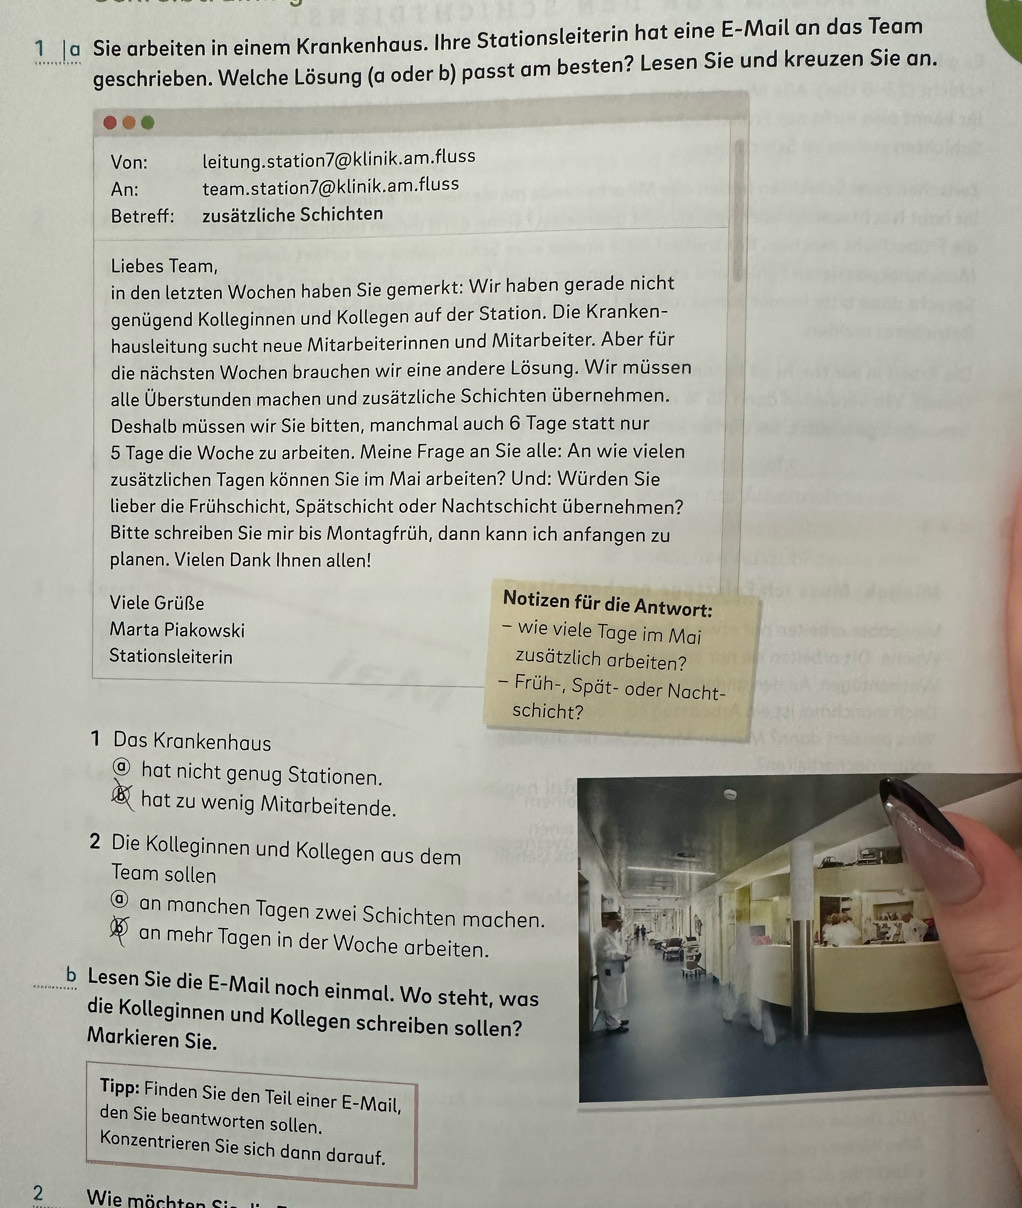 1 a Sie arbeiten in einem Krankenhaus. Ihre Stationsleiterin hat eine E-Mail an das Team
geschrieben. Welche Lösung (a oder b) passt am besten? Lesen Sie und kreuzen Sie an.
Von: leitung.station7@klinik.am.fluss
An: team.station7@klinik.am.fluss
Betreff: zusätzliche Schichten
Liebes Team,
in den letzten Wochen haben Sie gemerkt: Wir haben gerade nicht
genügend Kolleginnen und Kollegen auf der Station. Die Kranken-
hausleitung sucht neue Mitarbeiterinnen und Mitarbeiter. Aber für
die nächsten Wochen brauchen wir eine andere Lösung. Wir müssen
alle Überstunden machen und zusätzliche Schichten übernehmen.
Deshalb müssen wir Sie bitten, manchmal auch 6 Tage statt nur
5 Tage die Woche zu arbeiten. Meine Frage an Sie alle: An wie vielen
zusätzlichen Tagen können Sie im Mai arbeiten? Und: Würden Sie
lieber die Frühschicht, Spätschicht oder Nachtschicht übernehmen?
Bitte schreiben Sie mir bis Montagfrüh, dann kann ich anfangen zu
planen. Vielen Dank Ihnen allen!
Viele Grüße
Marta Piakowski
Stationsleiterin
Notizen für die Antwort:
– wie viele Tage im Mai
zusätzlich arbeiten?
– Früh-, Spät- oder Nacht-
schicht?
1 Das Krankenhaus
a hat nicht genug Stationen.
b hat zu wenig Mitarbeitende.
2 Die Kolleginnen und Kollegen aus dem
Team sollen
a an manchen Tagen zwei Schichten machen.
b an mehr Tagen in der Woche arbeiten.
b Lesen Sie die E-Mail noch einmal. Wo steht, was
die Kolleginnen und Kollegen schreiben sollen?
Markieren Sie.
Tipp: Finden Sie den Teil einer E-Mail,
den Sie beantworten sollen.
Konzentrieren Sie sich dann darauf.
2 Wie möchten Sie